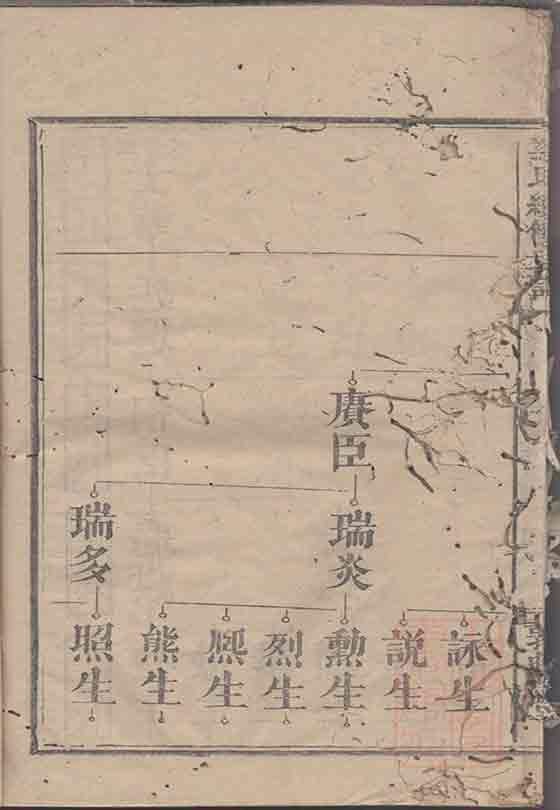 賡臣
瑞炎
瑞多
詠生
説生
勳生
烈生
熈生
熊生
照生